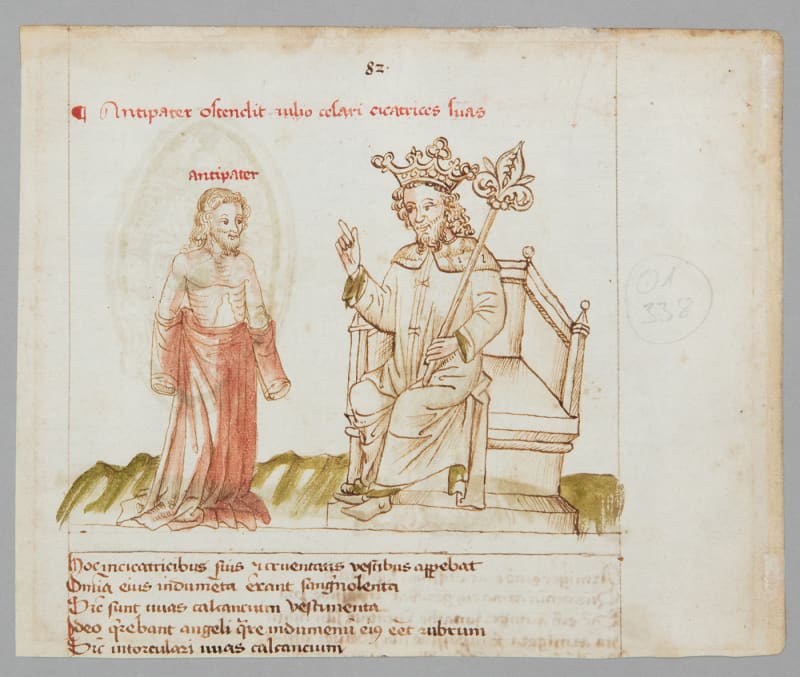 82·
¶ Antipater ostendit iulio cesari cicatrices suas
antipater
01
338
Hoc in cicatricibus suis ⁊ cruentatis vestibus appebat
Omīa eius indumēta erant sangnolenta
Sic sunt uuas calcancium vestimenta
Ideo q̄rebant angeli q̄re indumentū eiꝰ eēt rubrum
Sic in torculari uuas calcancium